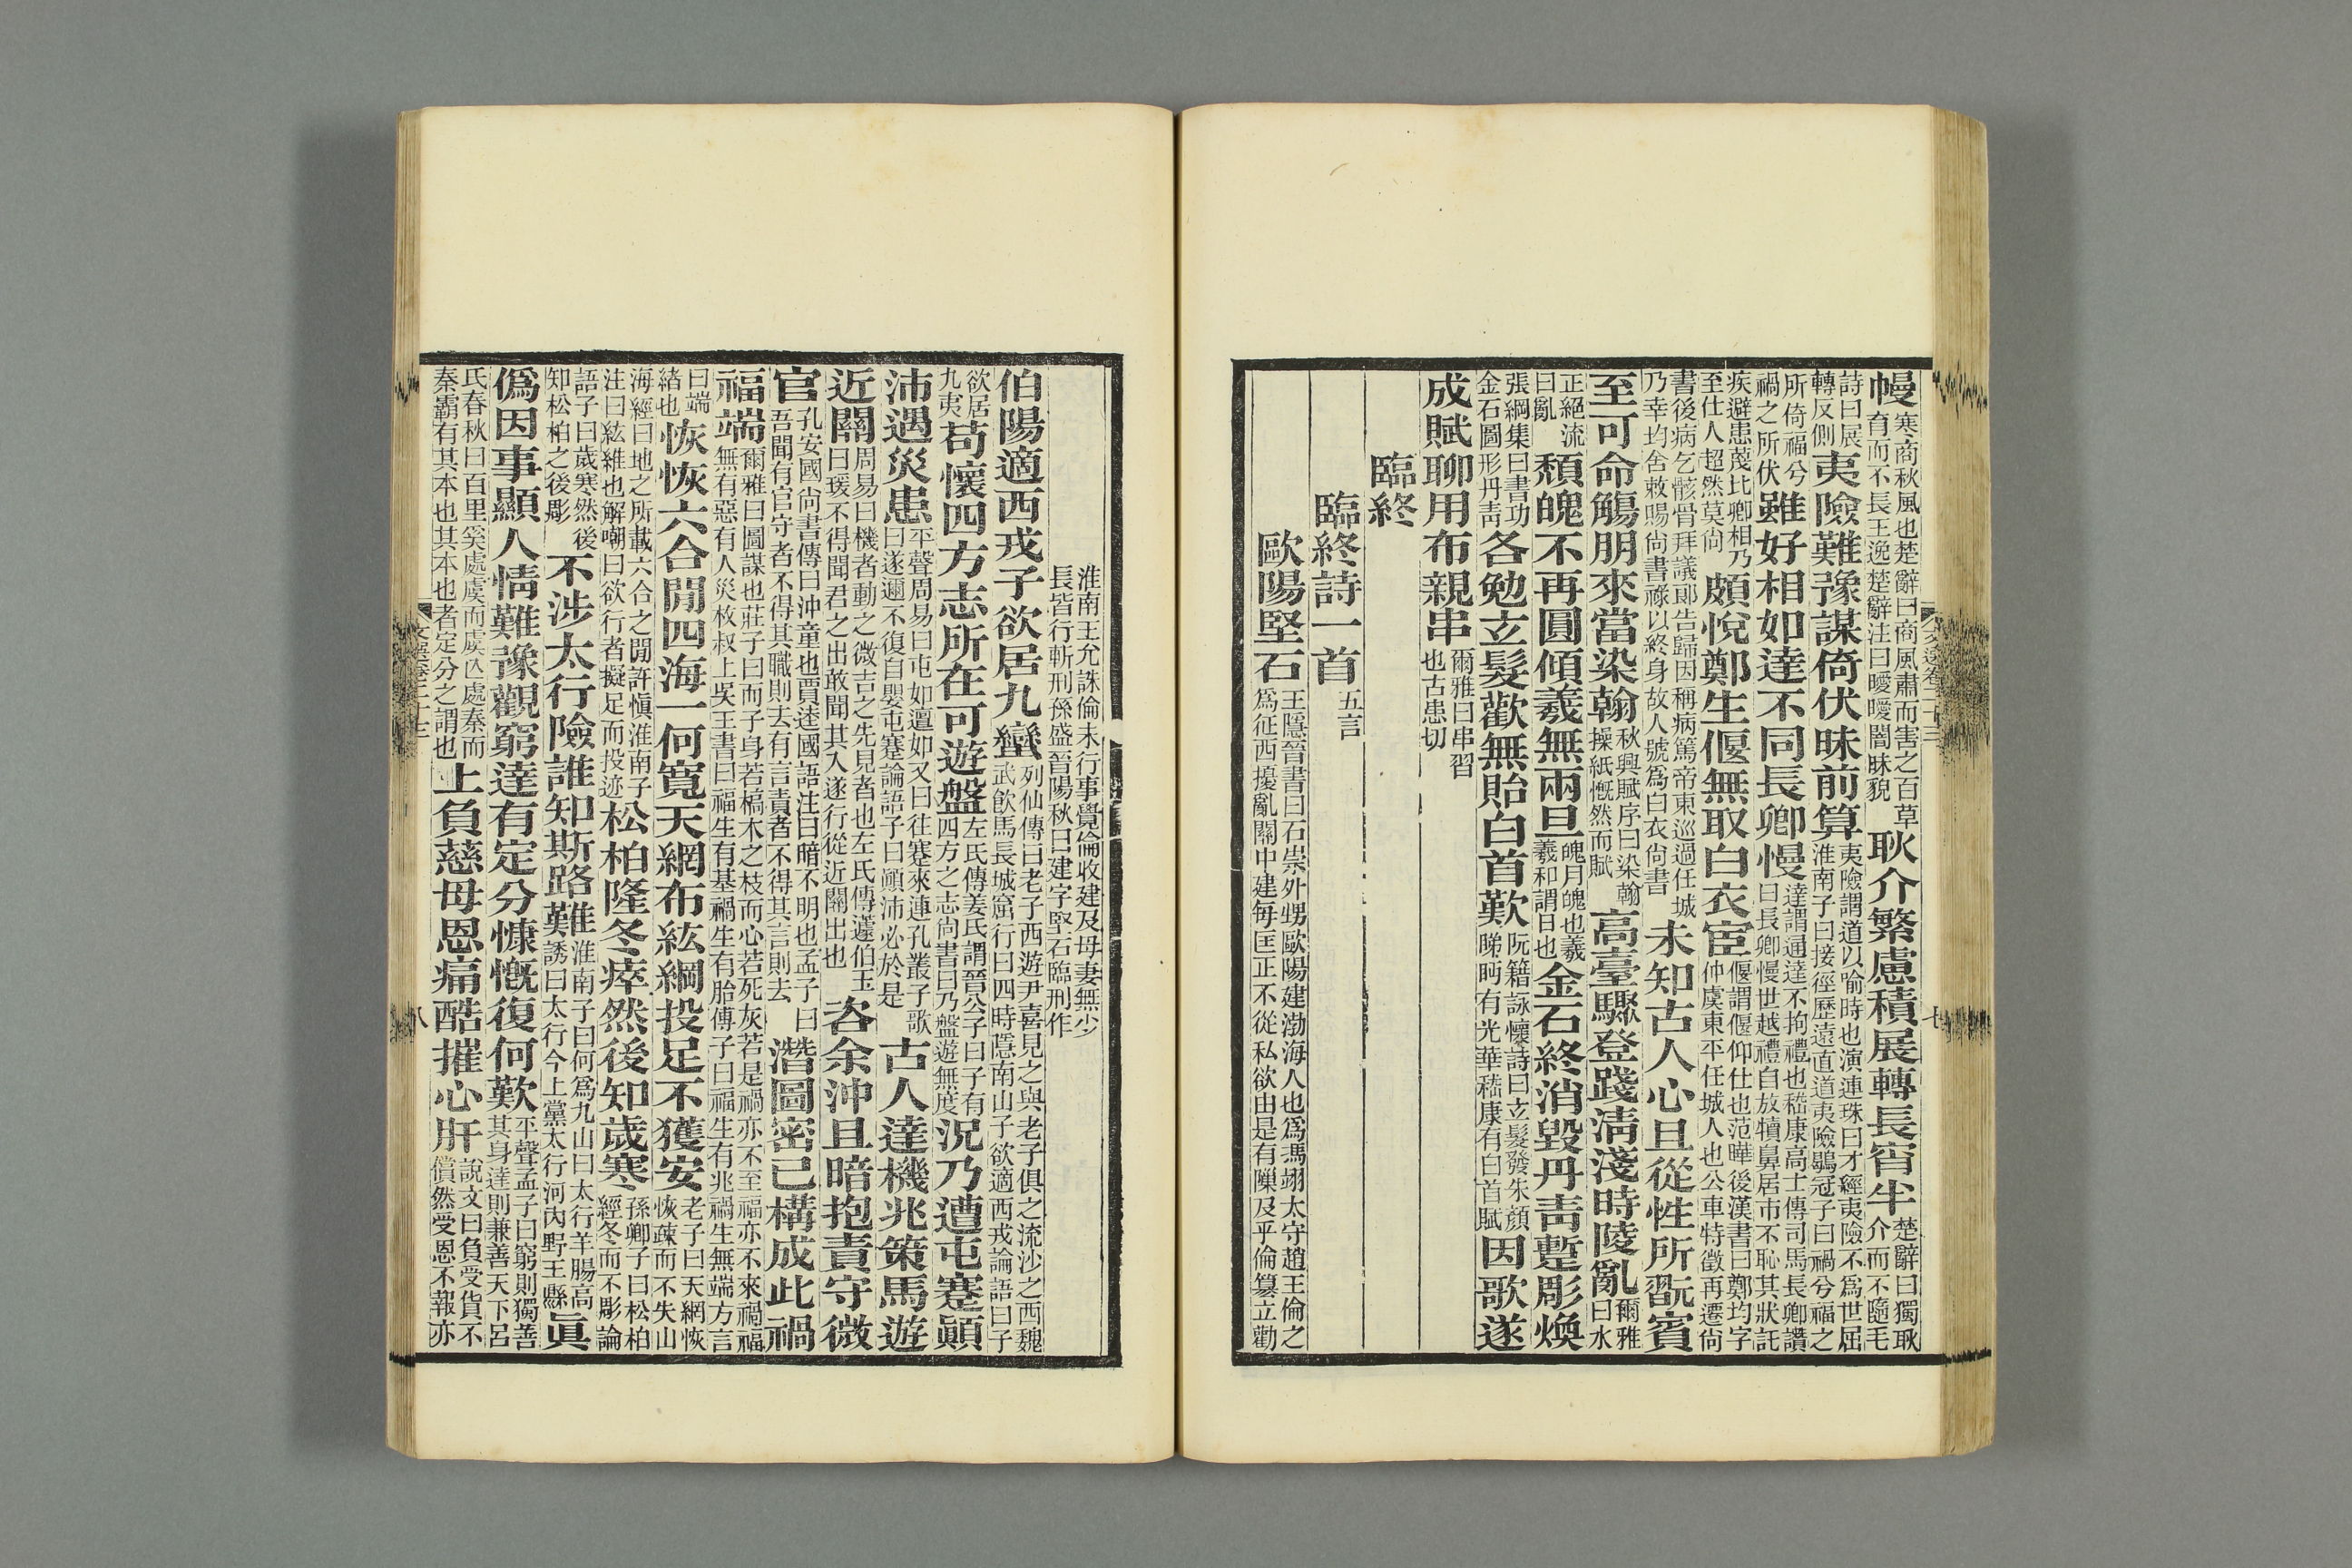 幔寒商秋風也楚辭曰商風肅而害之百草育而不長王逸楚辭注曰曖曖闇昧貌耿介繁慮積展轉長宵半楚辭曰獨耿介而不隨毛
詩曰展轉反側夷險難豫謀倚伏昧前算夷險謂道以喻時也演連珠曰才經夷險不爲世屈淮南子曰接徑歷遠直道夷險鶡冠子曰禍兮福之
所倚福兮禍之所伏雖好相如達不同長卿慢達謂通達不拘禮也嵇康高士傳司馬長卿讚曰長卿慢世越禮自放犢鼻居市不恥其狀託
疾避患蔑比卿相乃至仕人超然莫尙頗悅鄭生偃無取白衣宦偃謂偃仰仕也范曄後漢書曰鄭均字仲虞東平任城人也公車特徵再遷尙
書後病乞骸骨拜議郞告歸因稱病篤帝東巡過任城乃幸均舍敕賜尙書祿以終身故人號爲白衣尙書未知古人心且從性所翫賓
至可命觴朋來當染翰秋興賦序曰染翰操紙慨然而賦高臺驟登踐淸淺時陵亂爾雅曰水
正絕流曰亂頹魄不再圓傾羲無兩旦魄月魄也羲羲和謂日也金石終消毀丹靑蹔彫煥
張綱集曰書功金石圖形丹靑各勉玄髮歡無貽白首歎阮籍詠懷詩曰玄髮發朱顏睇眄有光華嵇康有白首賦因歌遂
成賦聊用布親串爾雅曰串習也古患切
臨終
臨終詩一首五言
歐陽堅石王隱晉書曰石崇外甥歐陽建渤海人也爲馮翊太守趙王倫之爲征西擾亂關中建每匡正不從私欲由是有隟及乎倫篡立勸
文選卷二十三
七
淮南王允誅倫未行事覺倫收建及母妻無少長皆行斬刑孫盛晉陽秋曰建字堅石臨刑作
伯陽適西戎子欲居九蠻列仙傳曰老子西遊尹喜見之與老子俱之流沙之西魏武飮馬長城窟行曰四時隱南山子欲適西戎論語曰子
欲居九夷苟懷四方志所在可遊盤左氏傳姜氏謂晉公子曰子有四方之志尙書曰乃盤遊無度況乃遭屯蹇顚
沛遇災患平聲周易曰屯如邅如又曰往蹇來連孔叢子歌曰遂邇不復自嬰屯蹇論語子曰顚沛必於是古人達機兆策馬遊
近關周易曰機者動之微吉之先見者也左氏傳蘧伯玉曰瑗不得聞君之出敢聞其入遂行從近關出也咨余沖且暗抱責守微
官孔安國尙書傳曰沖童也賈逵國語注曰暗不明也孟子曰吾聞有官守者不得其職則去有言責者不得其言則去潛圖密已構成此禍
福端爾雅曰圖謀也莊子曰而子身若槁木之枝而心若死灰若是禍亦不至福亦不來禍福無有惡有人災枚叔上吳王書曰福生有基禍生有胎傅子曰福生有兆禍生無端方言
曰端緖也恢恢六合閒四海一何寬天網布紘綱投足不獲安老子曰天網恢恢疎而不失山
海經曰地之所載六合之閒許愼淮南子注曰紘維也解嘲曰欲行者擬足而投迹松柏隆冬瘁然後知歲寒孫卿子曰松柏經冬而不彫論
語子曰歲寒然後知松柏之後彫不涉太行險誰知斯路難淮南子曰何爲九山曰太行羊腸高誘曰太行今上黨太行河內野王縣眞
僞因事顯人情難豫觀窮達有定分慷慨復何歎平聲孟子曰窮則獨善其身達則兼善天下呂
氏春秋曰百里奚處虞而虞亾處秦而秦霸有其本也其本也者定分之謂也上負慈母恩痛酷摧心肝說文曰負受貨不償然受恩不報亦
文選卷二十三
八